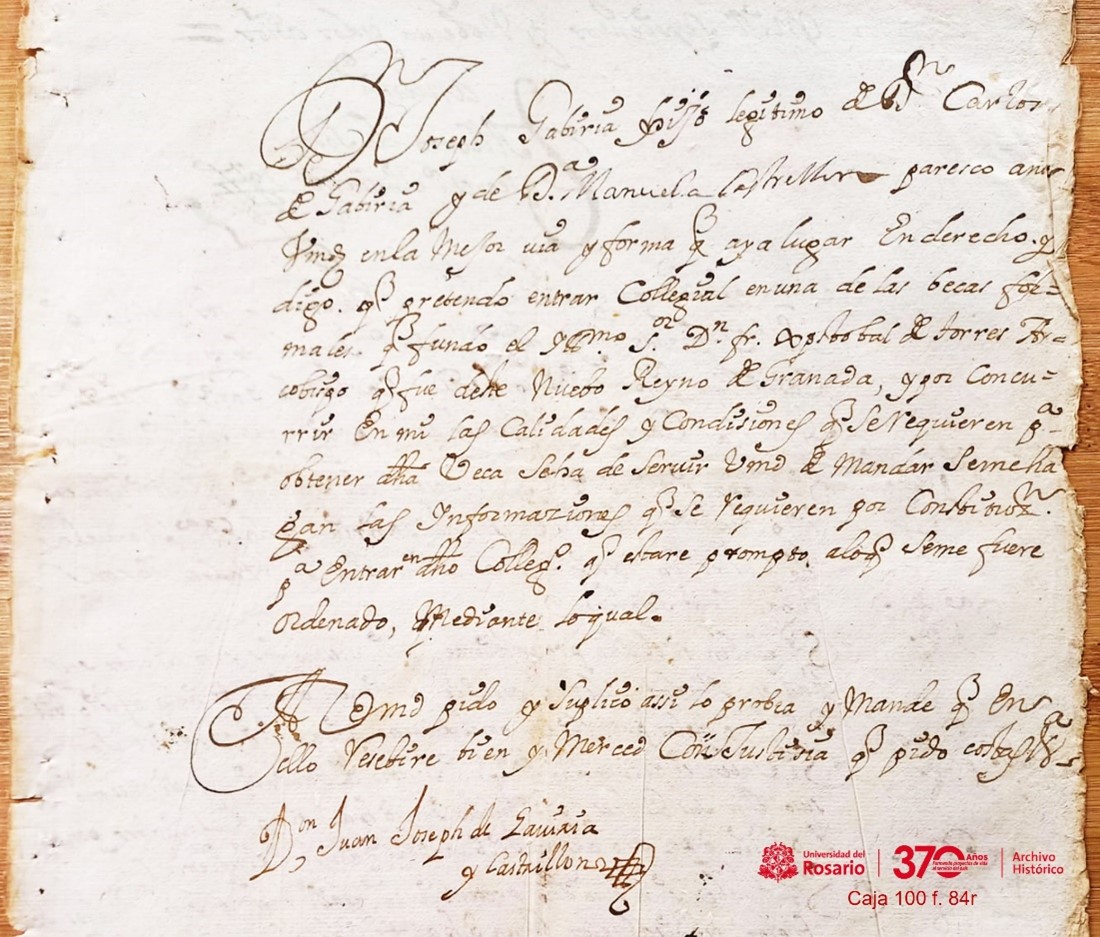 Dn Joseph Gabiria hijo legitimo de Dn Carlos
de Gabiria y de Da. Manuela Castrillon paresco ante
Vmd en la Mejor via y forma q aya lugar En derecho y
digo. q pretendo entrar Collegial en una de las becas for=
males q fundó el yllmo sor Dn fr. Xptobal de torres Ar=
cobispo q fue deste Nuebo Reyno de Granada, y por Concu=
rrir En mi las Calidades y Condisiones q se requieren pa
obtener dha Veca Seha de Servir Vmd de Mandar Semeha
gan las Informaziones q se requieren por Constituzn.
pa Entrar en dho Collego. q estare prompto aloq Seme fuere
ordenado, Mediante loqual.
A Vmd pido y Suplico assi lo probea y Mande q En
ello resebire bien y Merced Con Justisia q pido costas
Don Juan Joseph de Gaviria
y Castrillon
Universidad del
Rosario
370 Años
Archivo
Histórico
Caja 100 f. 84r